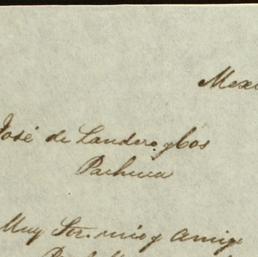 Mexi
José de Landero y Cos
Pachuca
Muy Sor. mio y Amigo